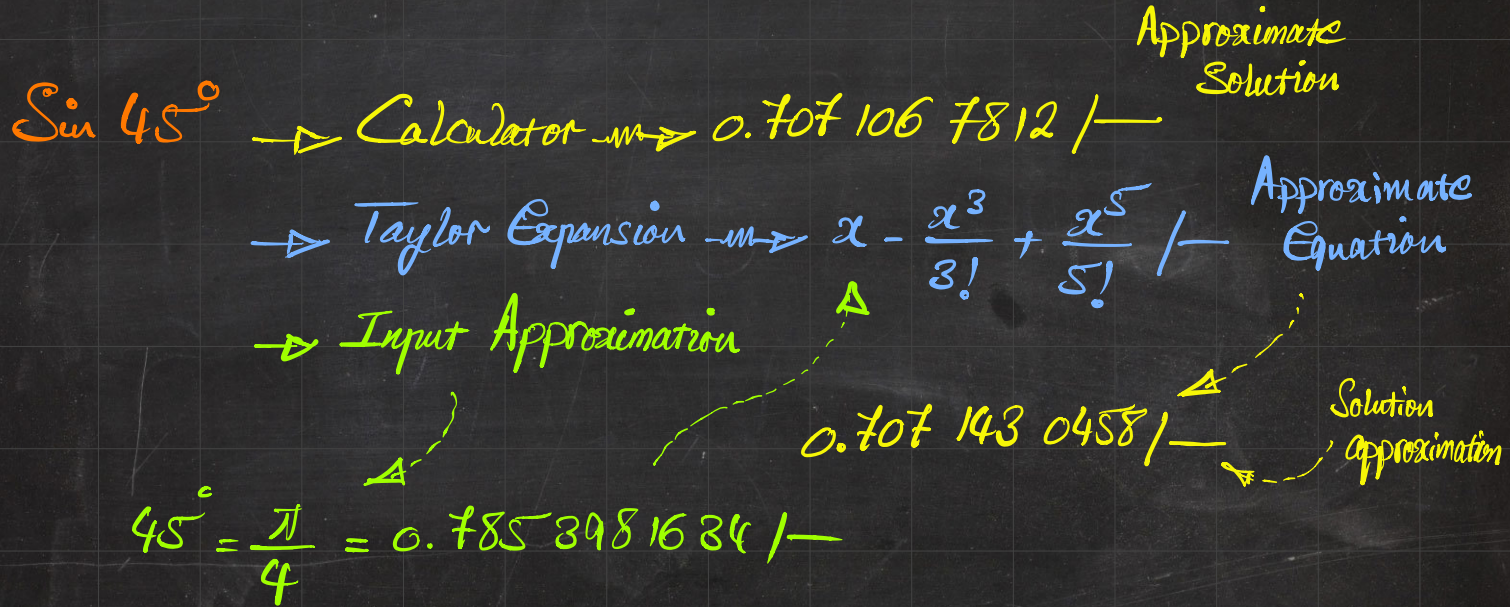 Approximate
Solution
Sin 45° → Calculator → 0.707 106 7812 /—
→ Taylor Expansion → x - x³/3! + x⁵/5! /—
Approximate
Equation
→ Input Approximation
0.707 143 0458 /—
Solution
approximation
45° = π/4 = 0.785 398 1634 /—